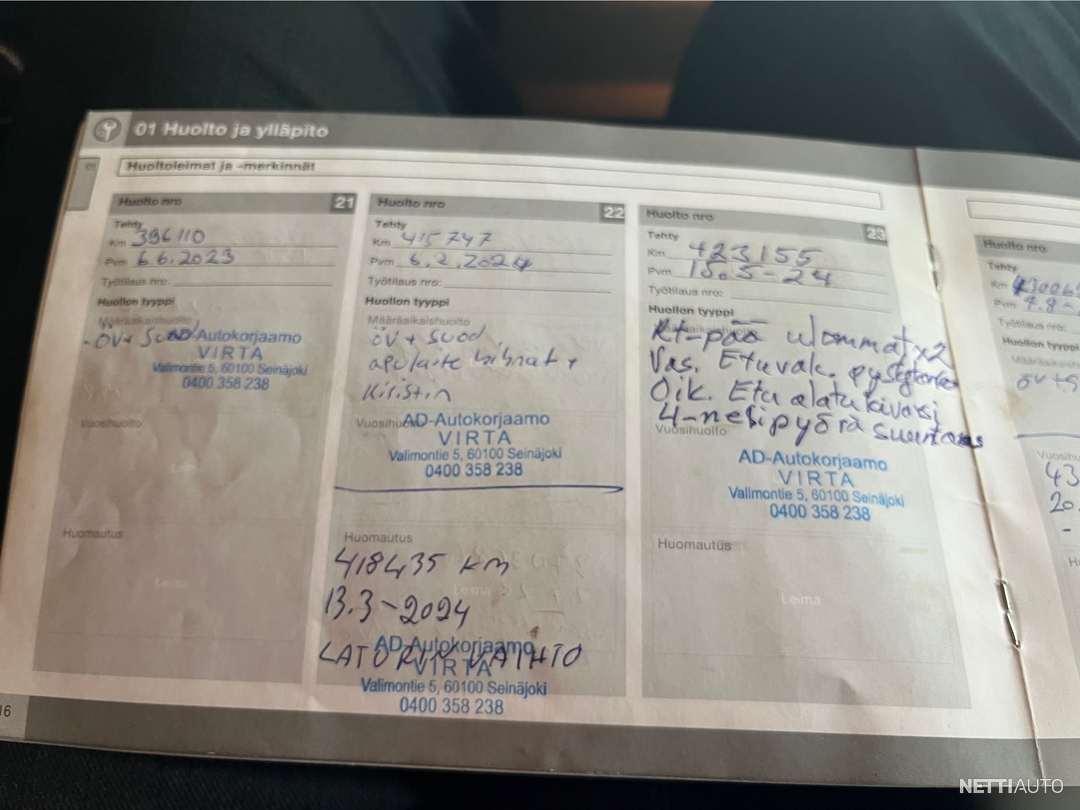 01 Huolto ja ylläpito
01
Huoltoleimat ja -merkinnät
Huolto nro 21
Tehty
Km 396110
Pvm 6.6.2023
Työtilaus nro:
Huollon tyyppi
Määräaikaishuolto
öv+ Suod
AD-Autokorjaamo
VIRTA
Valimontie 5, 60100 Seinäjoki
0400 358 238
Vuosihuolto
Leima
Huomautus
Leima
Huolto nro 22
Tehty
Km 415747
Pvm 6.2.2024
Työtilaus nro:
Huollon tyyppi
Määräaikaishuolto
öv + suod
apulaite hihnat +
Kiristin
Vuosihuolto
AD-Autokorjaamo
VIRTA
Valimontie 5, 60100 Seinäjoki
0400 358 238
Huomautus
418435 km
Leima
13.3-2024
LATURIN VAIHTO
AD-Autokorjaamo
VIRTA
Valimontie 5, 60100 Seinäjoki
0400 358 238
Huolto nro 23
Tehty
Km 423155
Pvm 15.5-24
Työtilaus nro:
Huollon tyyppi
Määräaikaishuolto
Rt-pää ulommat x2
Vas. Etuvak.
Oik. Etu alatukivarsi
4-nelipyörä suuntaus
Vuosihuolto
AD-Autokorjaamo
VIRTA
Valimontie 5, 60100 Seinäjoki
0400 358 238
Huomautus
Leima
Huolto nro
Tehty
Km
Pvm
Työtilaus nro:
Huollon tyyppi
öv+s
43
20.
-
16
NETTIAUTO